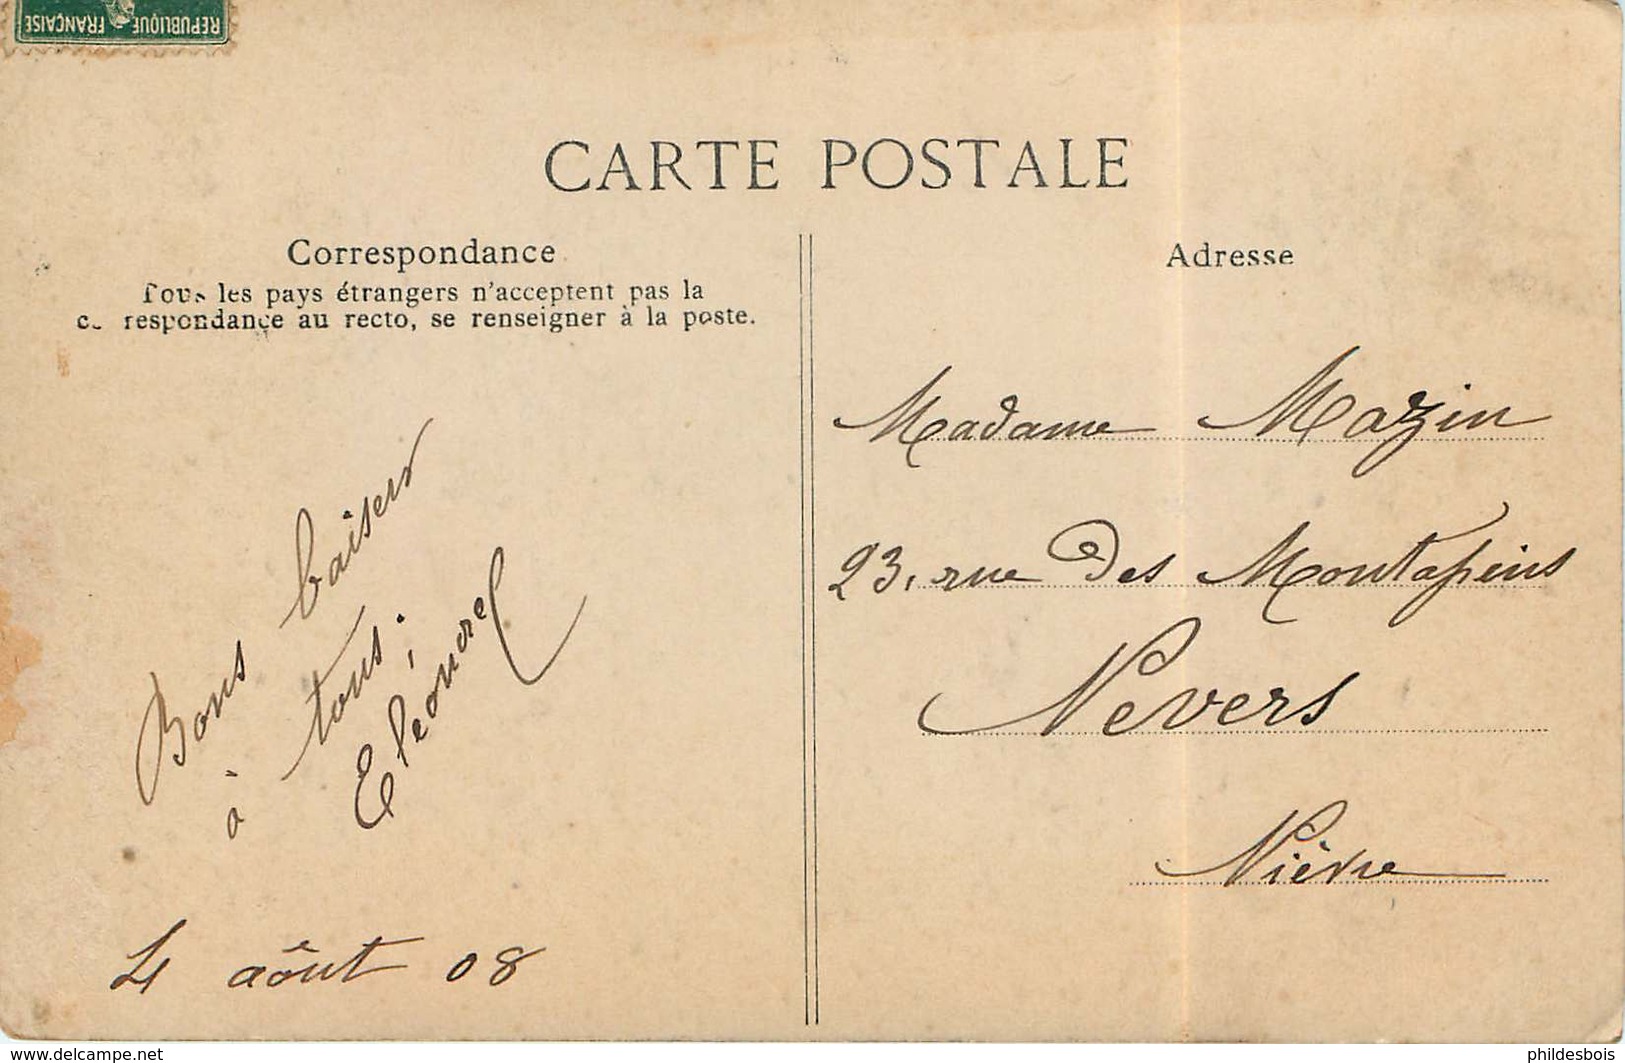 REPUBLIQUE FRANÇAISE
CARTE POSTALE
Correspondance
Tous les pays étrangers n'acceptent pas la
c. respondance au recto, se renseigner à la poste.
Adresse
Bons baisers
à tous.
Eléonore
4 août 08
Madame Mazin
23, rue des Montapins
Nevers
Nièvre
www.delcampe.net
phildesbois